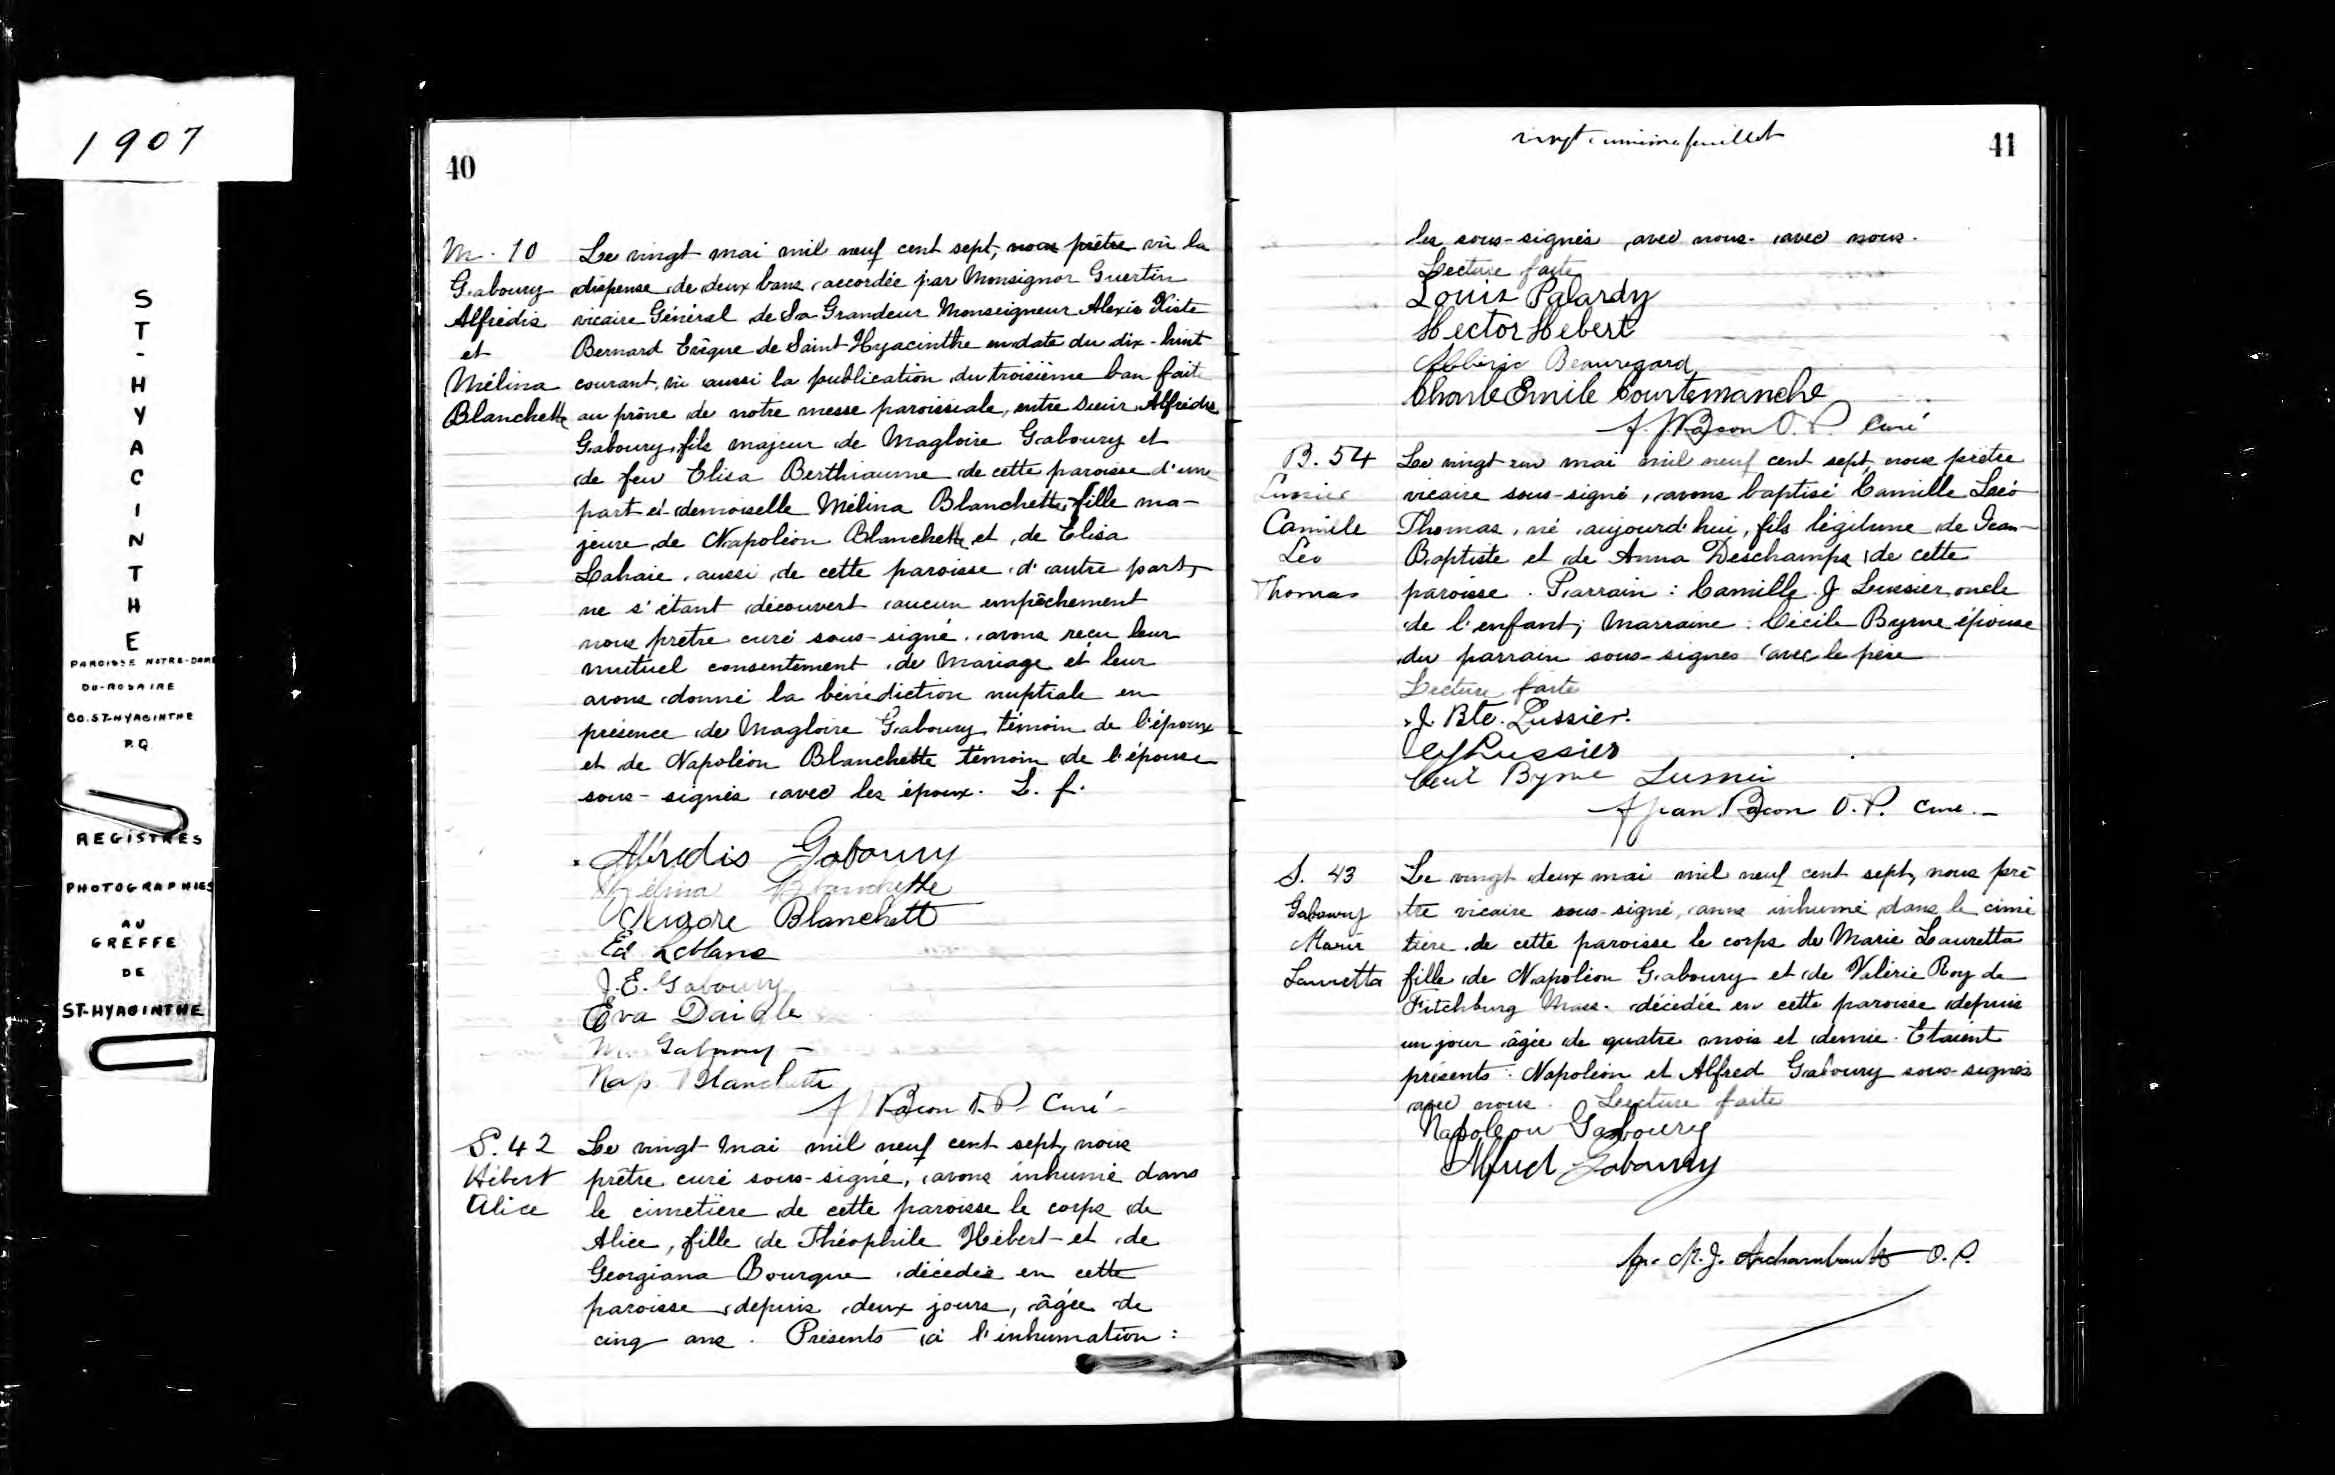 1907
ST-HYACINTHE
PAROISSE NOTRE-DAME
DU-ROSAIRE
CO. ST-HYACINTHE
P.Q.
REGISTRES
PHOTOGRAPHIES
AU
GREFFE
DE
ST-HYACINTHE
40
M. 10
Gaboury
Alfrédis
et
Mélina
Blanchette
Le vingt mai mil neuf cent sept, nous prêtre vu la
dispense de deux bans accordée par Monsignor Guertin
vicaire Général de Sa Grandeur Monseigneur Alexis Xiste
Bernard Evêque de Saint-Hyacinthe en date du dix-huit
courant, vu aussi la publication du troisième ban faite
au prône de notre messe paroissiale, entre Sieur Alfrédis
Gaboury, fils majeur de Magloire Gaboury et
de feu Elisa Berthiaume de cette paroisse d'une
part et demoiselle Mélina Blanchette, fille ma-
jeure de Napoléon Blanchette et de Elisa
Lahaie, aussi de cette paroisse d'autre part,
ne s'étant découvert aucun empêchement
nous prêtre curé sous-signé, avons reçu leur
mutuel consentement de mariage et leur
avons donné la bénédiction nuptiale en
présence de Magloire Gaboury témoin de l'époux
et de Napoléon Blanchette témoin de l'épouse
sous-signés avec les époux. L. f.
Alfredis Gaboury
Mélina Blanchette
Blanchett
Ed Leblanc
J. E. Gaboury
Eva Daigle
Gaboury
Nap Blanchette
O. P. Curé
S. 42
Hébert
Alice
Le vingt mai mil neuf cent sept, nous
prêtre curé sous-signé, avons inhumé dans
le cimetière de cette paroisse le corps de
Alice, fille de Théophile Hébert et de
Georgiana Bourque décédée en cette
paroisse depuis deux jours, âgée de
cinq ans. Présents à l'inhumation:
vingt-unième feuillet
41
les sous-signés avec nous. avec nous.
Lecture faite
Louis Palardy
Hector Hebert
Albéric Beauregard
Charle Emile Courtemanche
O. P. Curé
B. 54
Lussier
Camille
Léo
Thomas
Le vingt-un mai mil neuf cent sept, nous prêtre
vicaire sous-signé, avons baptisé Camille Léo
Thomas, né aujourd'hui, fils légitime de Jean-
Baptiste et de Anna Deschamps de cette
paroisse. Parrain: Camille J Lussier oncle
de l'enfant; Marraine: Cécile Byrne épouse
du parrain sous-signés avec le père
Lecture faite
J. Bte. Lussier.
Lussier
Byrne Lussier
O. P. Curé.
S. 43
Gaboury
Marie
Lauretta
Le vingt deux mai mil neuf cent sept, nous prê
tre vicaire sous-signé, avons inhumé dans le cime
tière de cette paroisse le corps de Marie Lauretta
fille de Napoléon Gaboury et de Valérie Roy de
Fitchburg Mass. décédée en cette paroisse depuis
un jour âgée de quatre mois et demie. Etaient
présents: Napoléon et Alfred Gaboury sous-signés
avec nous. Lecture faite
Napoleon Gaboury
Alfred Gaboury
fr. M. J. Archambault O. P.